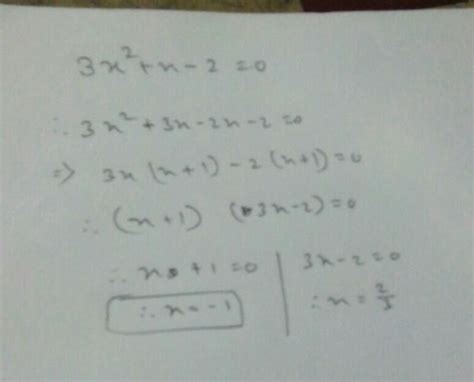 3x²+x-2=0
∴ 3x²+3x-2x-2=0
⇒ 3x(x+1)-2(x+1)=0
∴ (x+1) (3x-2)=0
∴ x+1=0 | 3x-2=0
∴ x=-1 | ∴ x=2/3